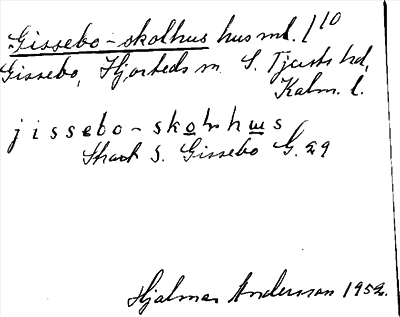 Gissebo-skolhus husml. 1/10
Gissebo, Hjorteds sn. S. Tjusts hd,
Kalm. l.
jissebo-skolrhus
Skack S. Gissebo G. 29
Hjalmar Andersson 1952.